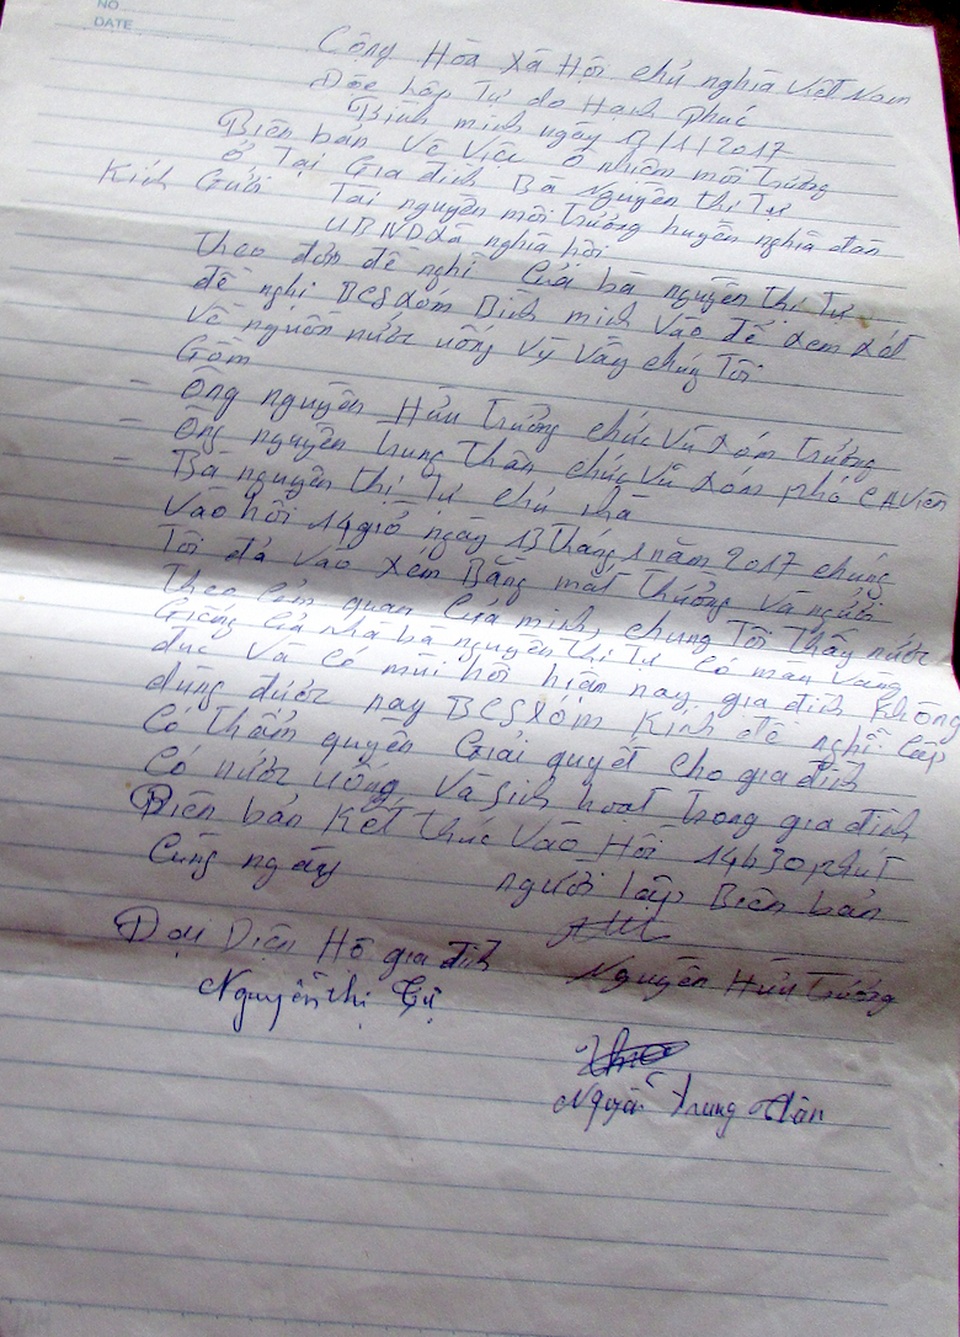 NO
DATE
Cộng Hòa Xã Hội chủ nghĩa Việt Nam
Độc lập Tự do Hạnh phúc
Bình minh ngày 13/1/2017
Biên bản Về Việc Ô nhiễm môi trường
ở Tại Gia đình Bà Nguyễn thị Tự
Kính Gửi Tài nguyên môi trường huyện nghĩa đàn
UBND xã nghĩa hội
Theo đơn đề nghị Của bà nguyễn thị Tự
đề nghị BCS xóm Bình minh vào để xem xét
về nguồn nước uống vỳ vậy chúng Tôi
Gồm
- Ông nguyễn Hửu Trưởng chức vụ xóm trưởng
- Ông nguyễn trung Thân chức vụ xóm phó CA viên
- Bà nguyễn thị Tự chủ nhà
vào hồi 14 giờ ngày 13 tháng 1 năm 2017 chúng
Tôi đả vào xem Bằng mắt thường và người
theo cảm quan của mình, chúng Tôi thấy nước
Giếng của nhà bà nguyễn thị Tự có màu vàng
đục và có mùi hôi hiện nay gia đình không
dùng được nay BCS xóm Kính đề nghị Cấp
có thẩm quyền Giải quyết cho gia đình
có nước uống và sinh hoạt trong gia đình
Biên bản kết thúc vào Hồi 14h30 phút
Cùng ngày
người lập Biên bản
Đại Diện Hộ gia đình
Nguyễn Hửu Trưởng
Nguyễn thị Tự
Nguyễn Trung Thân